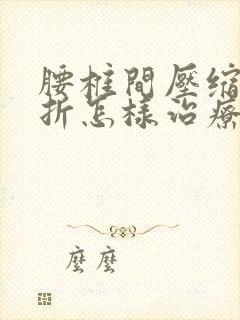 腰柱間壓縮
折怎樣治療
麼麼